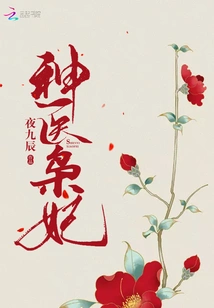 神医枭妃
夜九辰